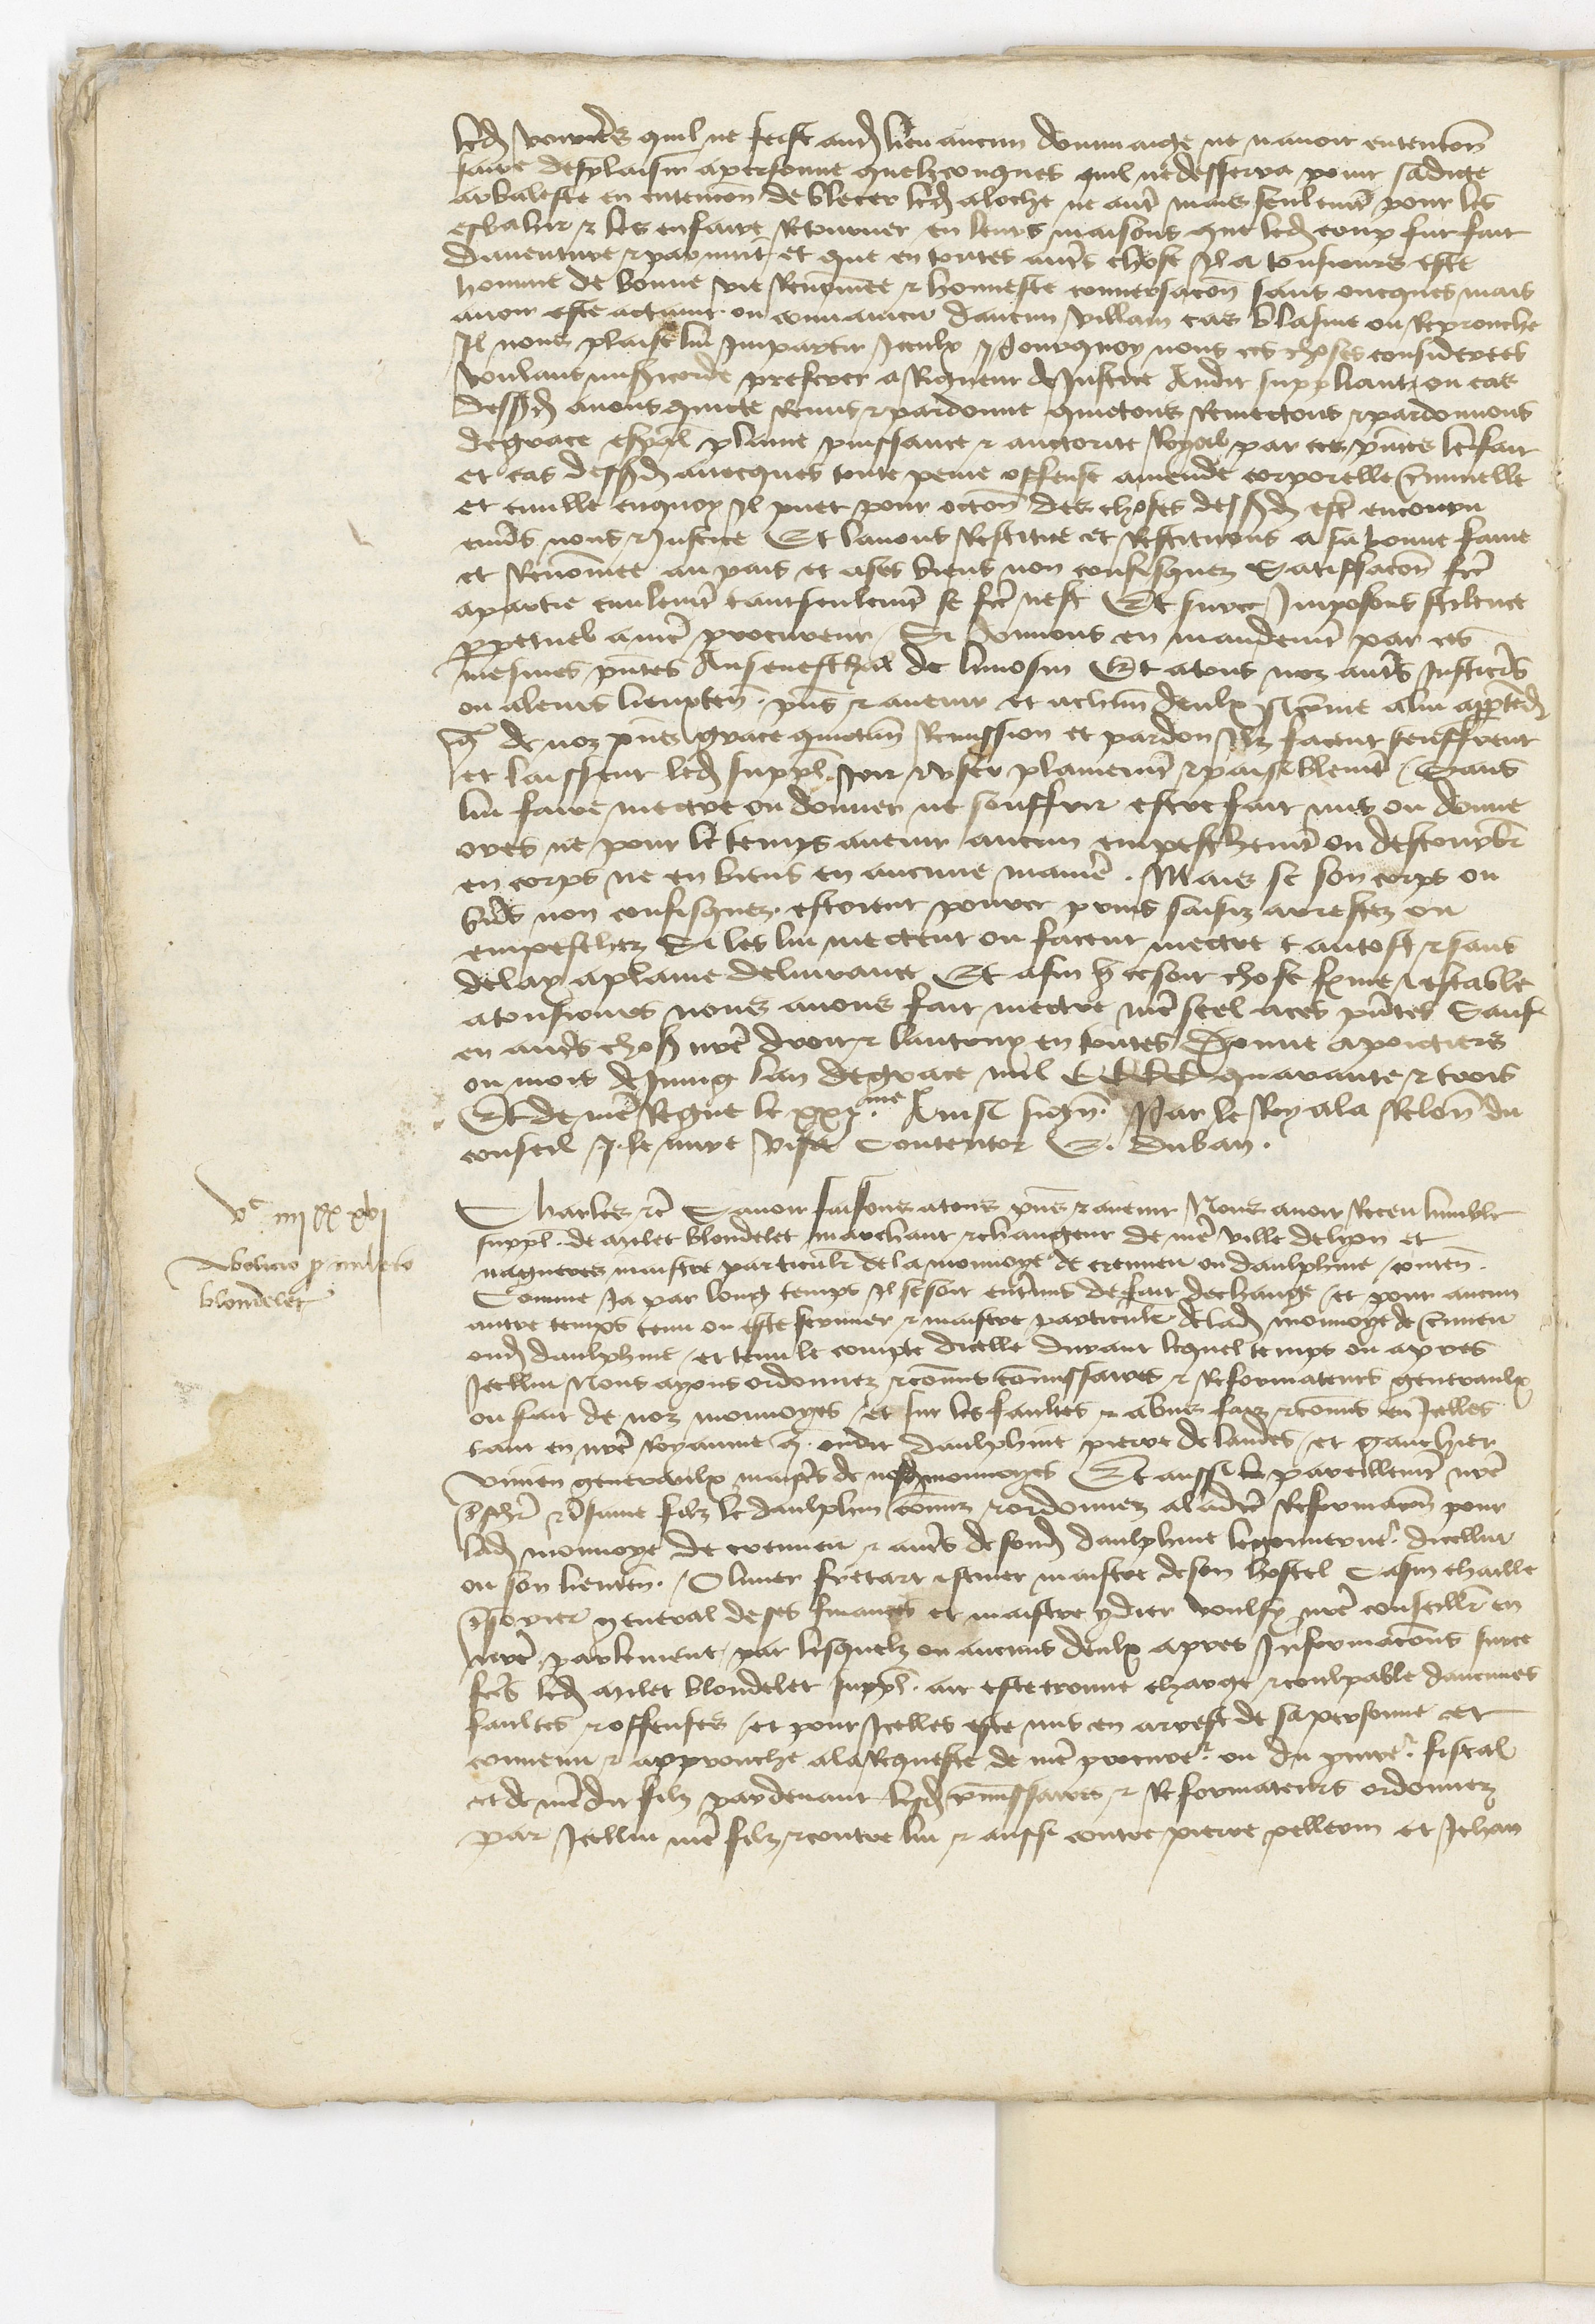 led vouvers quil ne feist aud lieu aucun dommaige ne navoit entencon
faire desplaisir a personne quelzconques quil ne desserra point sadicte
arbaleste en entencion de blecer led aloche ne autre mais seulemt pour les
esbahir & les enfaire retourner en leurs maisons que led coup fut fait
daventure & par et que en toutes autres chose Il a tousiours este
homme de bonne vie Renommee & honneste conversacon sans oncques mais
avoir este actaint ou convaincu daucun villain cas blasme ou Reprouche
Il nous plaise lui Impartir Icculx pourquoy nous ces choses considerees
voulant misicorde preferer a Rigueur de Justice Audit suppliant ou cas
dessd avons quicte Remis & pardonne quictons Remectons & pardonnons
de grace espal plaine puissance & auctorite Royal par ces pntes le fait
et cas dessd avecques toute peine offense amende corporelle criminelle
et civille en quoy Il puet pour occon des choses dessd estre encouru
envers nous & Justice Et lavons Restitue et Restituons a sa bonne fame
et Renommee au pais et a ses biens non confisquez Satiffacon fce
a partie civilemt tant seulemt se fce nest Et surce Imposons scilence
perpetuel a nre procureur Si donnons en mandemt par ces
mesmes pntes Au seneschal de limosin Et a tous noz autrs Justicers
ou a leurs lieuxten. pns & avenir et a chun deulx si come a lui appartendra
q de noz pns grace quictance Remission et pardon Ilz facent seuffrent
et laissent led suppl. Joir & user plainemt & paisiblemt Sans
lui faire mectre ou donner ne souffrir estre fait mis ou donne
ores ne pour le temps avenir aucun empeschemt ou destourbr
en corps ne en biens en aucune manie. Mais se son corps ou
biens non confisquez estoient pource prins saisiz arrestez ou
empeschez Si les lui mectent ou facent mectre tantost & sans
delay a plaine delivrance Et afin q ce soit chose ferme & estable
a tousiours nous avons fait mectre nre scel a ces pntes Sauf
en autrs chos nre droit & lautruy en toutes Donne a poictiers
ou mois de Juing lan de grace mil CCCC quarante & trois
Et de nre Regne le xxj.me Ainsi sign. Par le Roy a la Relon du
conseil J. le mire visa Contentor E. duban.
Charles etc Savoir faisons a tous pns & avenir Nous avoir Receu lumble
suppl. de milet blondelet marchant & changeur de nre ville de lyon et
nagueres maistre particulr de la monnoye de cremieu ou daulphine conten.
Comme Ja par long temps Il se soit entremis de fait de change et pour aucun
autre temps tenu ou este fermier & maistre particulr de lad monnoye de cremieu
oud daulphine et tenu le compte dicelle durant lequel temps ou apres
Icellui Nous ayons ordonnez & comis commissaires & Reformateurs generaulx
ou fait de noz monnoyes et sur les faultes & abuz faiz & comis en Icelles
tant en nre Royaume q oudit daulphine pierre de landes et gauchier
vinien generaulx maistrs de nosd monnoyes Et aussi pareillemt nre
treschr & tresame filz le daulphin commis & ordonnez a la dce Reformacon pour
lad monnoye de cremieu & autrs de soud daulphine le gouverner dicellui
ou son lieuten. Olivier fretart escuier maistre de son hostel Casin chaille
tresorier general de ses finances et maistre ydier voulsy nre conseillr en
nre parlement par lesquelz ou aucuns deulx apres Informacons surce
fces led milet blondelet suppl. ait este trouve charge & coulpable daucunes
faultes & offenses et pour Icelles este mis en arrest de sa personne et
convenu & approuche a la Requeste de nre procurer ou du procurer fiscal
et de nredit filz pardevant lesd commissaires & Reformateurs ordonnez
par Icellui nre filz & contre lui & aussi contre pierre pellerin et Jehan
vc iiijxx xvj
Abolicio pro mileto
blondelet